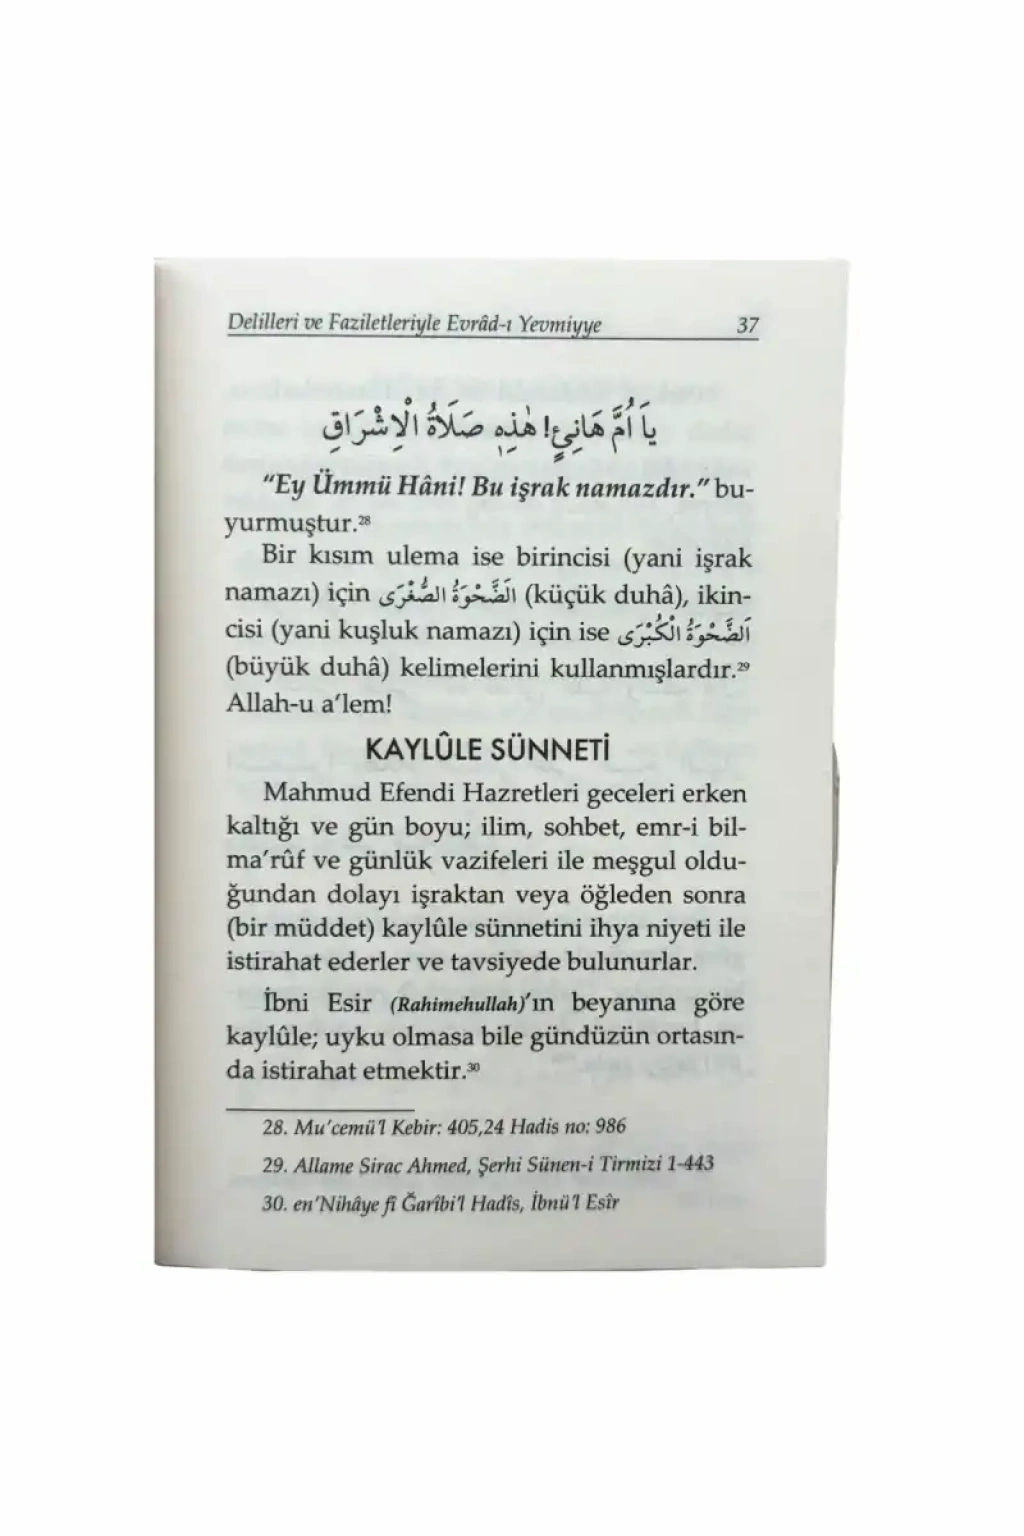 Delilleri ve Faziletleriyle Evrâd-ı Yevmiyye 37
يَا اُمَّ هَانِئٍ! هٰذِهِ صَلَاةُ الْاِشْرَاقِ
“Ey Ümmü Hâni! Bu işrak namazdır.” bu-
yurmuştur.²⁸
Bir kısım ulema ise birincisi (yani işrak
namazı) için اَلضَّحْوَةُ الصُّغْرَى (küçük duhâ), ikin-
cisi (yani kuşluk namazı) için ise اَلضَّحْوَةُ الْكُبْرَى
(büyük duhâ) kelimelerini kullanmışlardır.²⁹
Allah-u a’lem!
KAYLÛLE SÜNNETİ
Mahmud Efendi Hazretleri geceleri erken
kaltığı ve gün boyu; ilim, sohbet, emr-i bil-
ma’rûf ve günlük vazifeleri ile meşgul oldu-
ğundan dolayı işraktan veya öğleden sonra
(bir müddet) kaylûle sünnetini ihya niyeti ile
istirahat ederler ve tavsiyede bulunurlar.
İbni Esir (Rahimehullah)’ın beyanına göre
kaylûle; uyku olmasa bile gündüzün ortasın-
da istirahat etmektir.³⁰
28. Mu’cemü’l Kebir: 405,24 Hadis no: 986
29. Allame Sirac Ahmed, Şerhi Sünen-i Tirmizi 1-443
30. en’Nihâye fî Ğarîbi’l Hadîs, İbnü’l Esîr